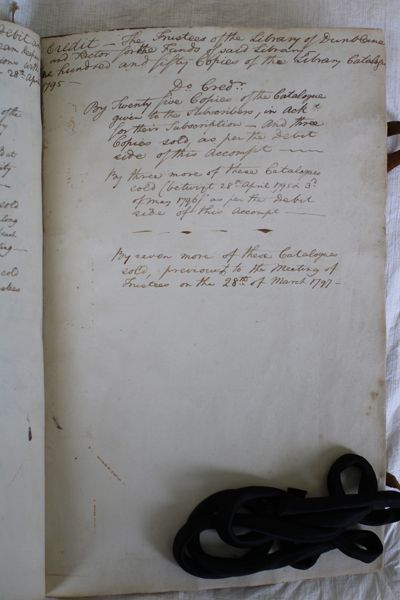 Debit
28th April
Credit — The Trustees of the Library of Dunblane
and Factor for the Funds of said Library
one hundred and fifty Copies of the Library Catalogue
1795 —
Do Credr.
By Twenty five Copies of the Catalogue
given to the Subscribers in Ackt.
for their Subscription — And three
Copies sold, as per the debit
side of this accompt —
By three more of these Catalogues
sold (betwixt 28th April 1795 & 3d.
of May 1796) as per the debit
side of this Accompt —
By seven more of these Catalogues
sold, previous to the Meeting of
Trustees on the 28th of March 1797 —